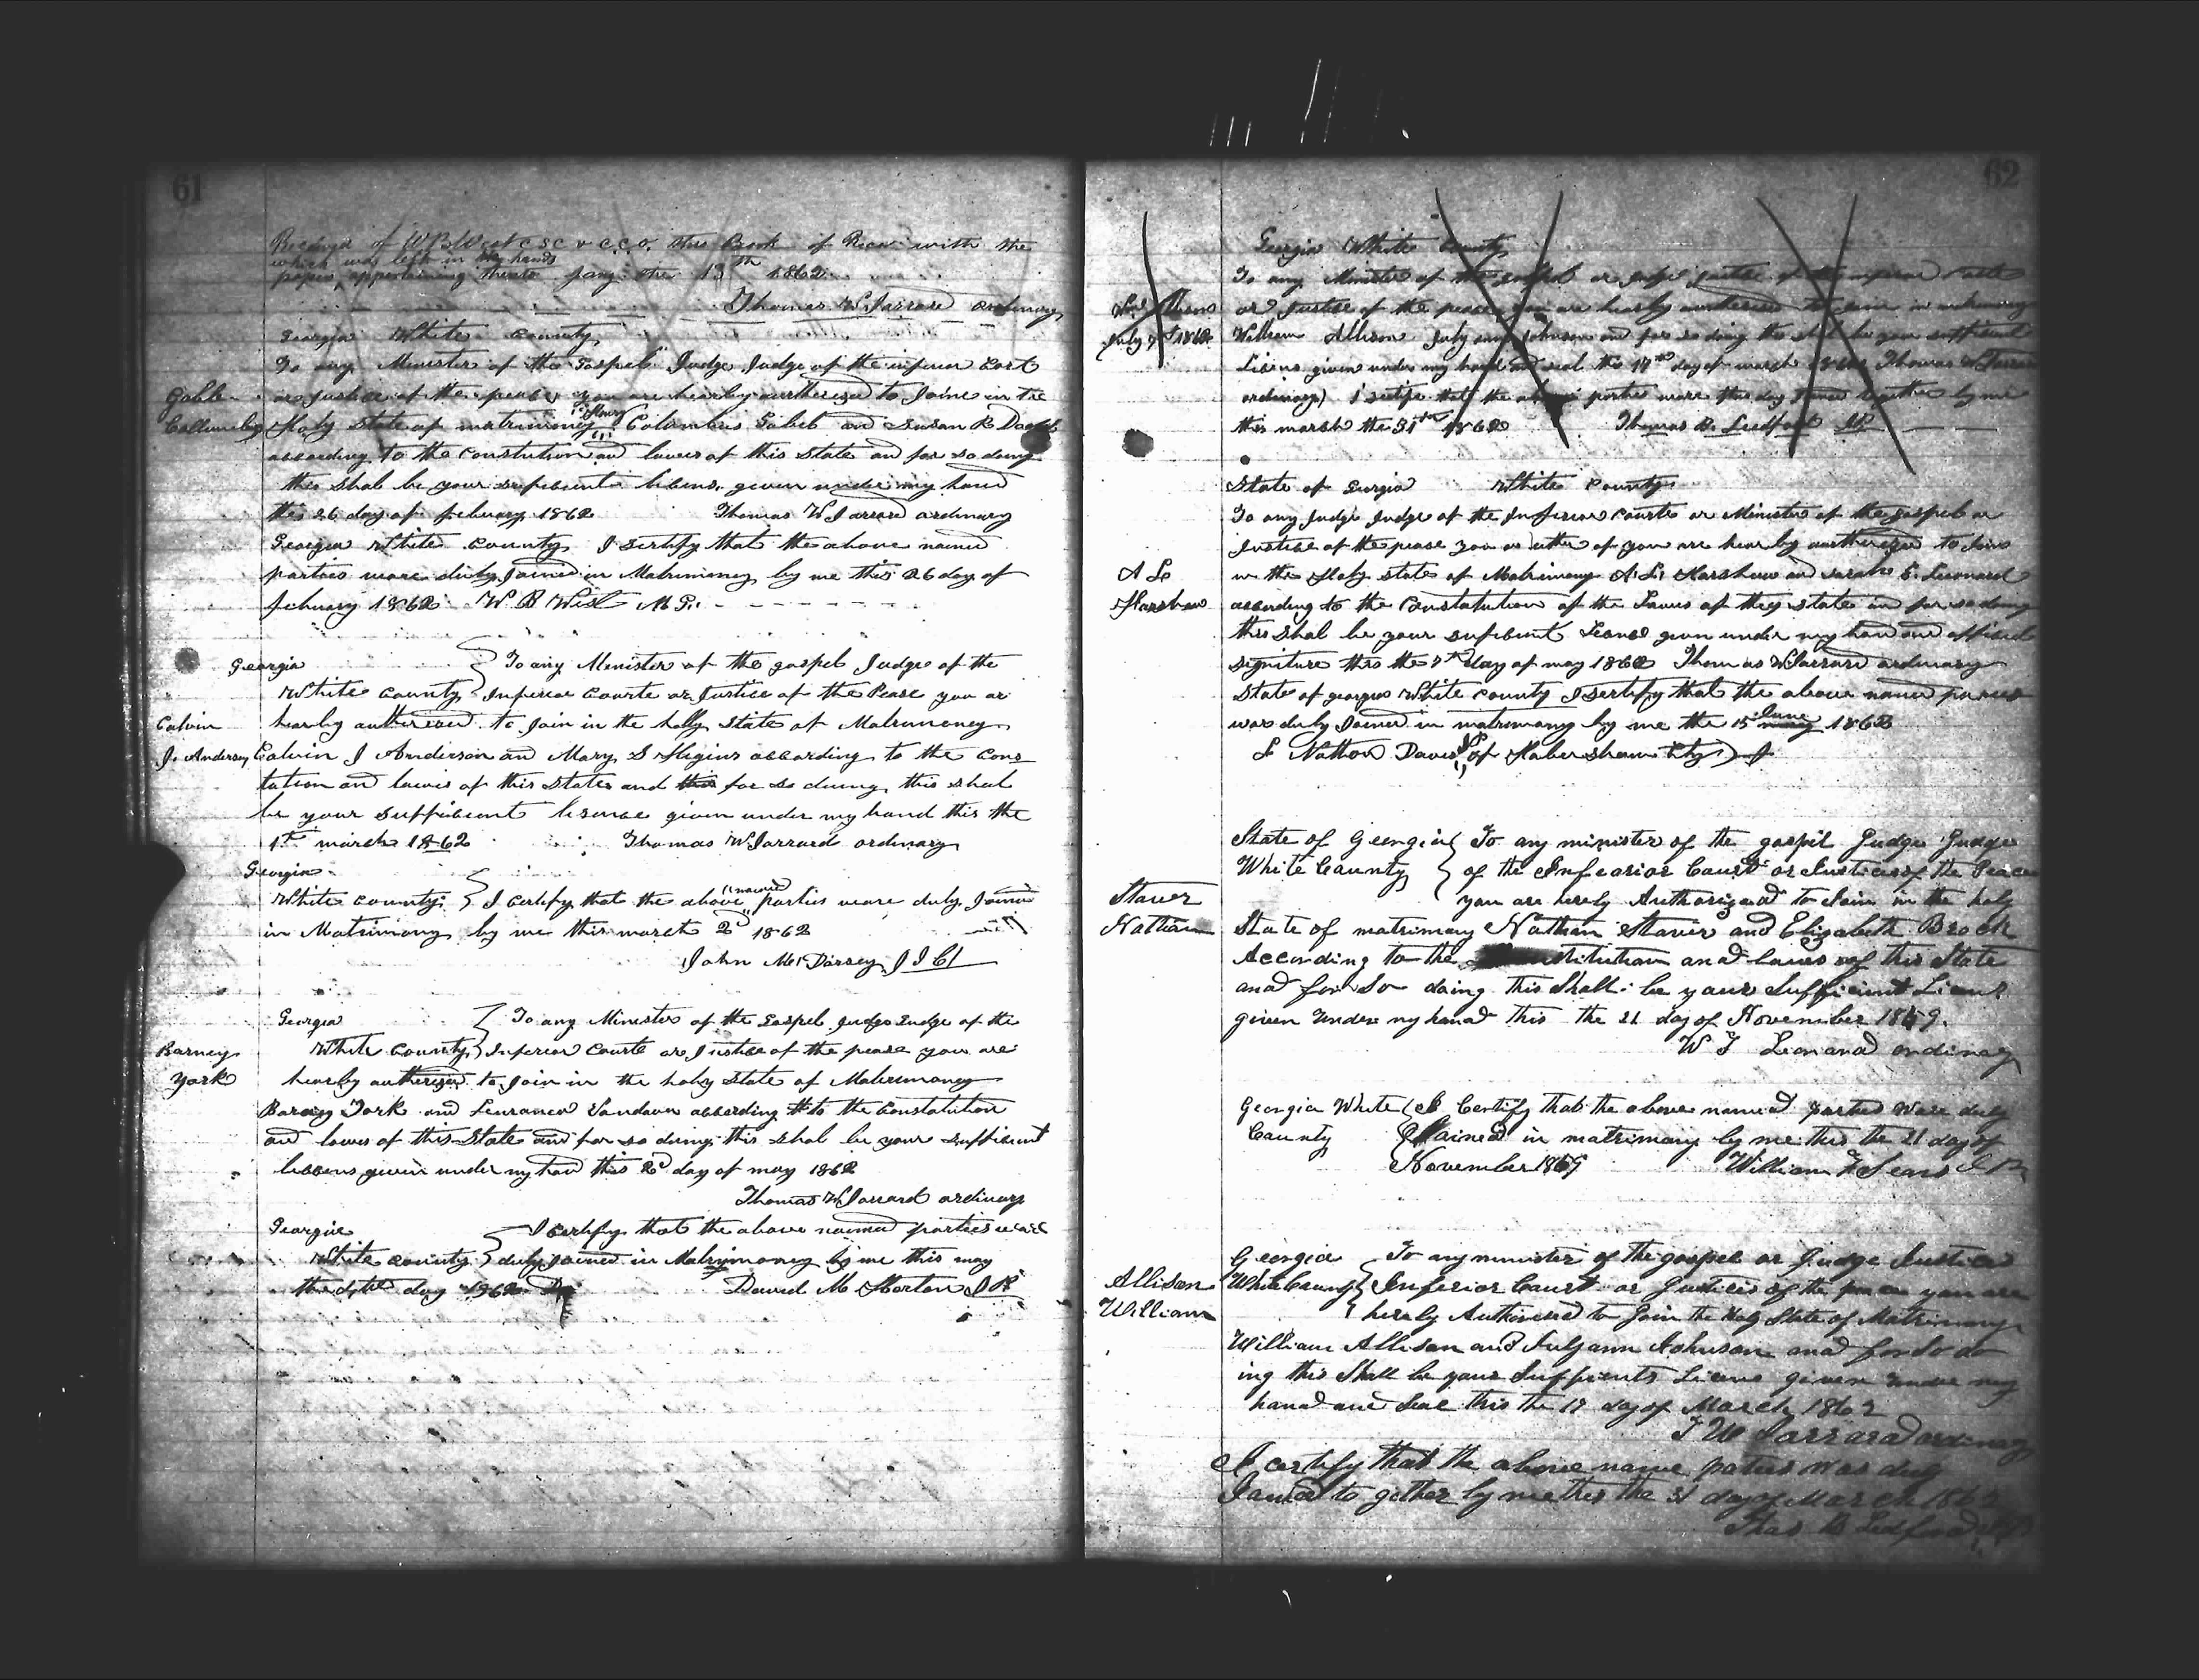 61
Recevd of W B West C S C & C C O. this Book of Recor with the
which was left in my hands
papers appertaining thereto Jany the 13th 1862
Thomas W Jarrard ordinary
Georgia White County
To any Minister of the Gospel Judge Judge of the inferior Cort
Gable
or justice of the peace you are hearby autherized to Joine in the
Collumbus
Holy State of matrimony Columbus Gabel and Susan R
according to the Constution and lawes of this State and for so doing
this shal be your sufficient licens given under my hand
this 26 day of febuary 1862 Thomas W Jarrard ordinary
Georgia White County I sertify that the above named
parties ware duly Joined in Matrimony by me this 26 day of
febuary 1862 W B West M G.
Georgia To any Minister of the gospel Judge of the
White County Inferior Courte or Justice of the Pease you ar
Calvin
hearby autherized to Join in the holly State of Matrimoney
J. Anderson
Calvin J Anderson and Mary S Higins according to the Cons
tution and lawes of this State and this for so doing this shal
be your sufficiant lisense given under my hand this the
1st march 1862 Thomas W Jarrard ordinary
Georgia
named
White County I certify that the above parties ware duly Joined
in Matrimony by me this march 2d 1862
John Mc Dorsey J I Ct
Georgia To any Minister of the Gospel Judge Judge of the
Barney
White County Inferior Courte or Justice of the pease you are
York
hearby autherized to Join in the holy State of Matrimoney
Barney York and Lauranca Vandavor according to the Constatution
and lawes of this State and for so doing this shal be your sufficient
licens given under my hand this 2d day of may 1862
Thomas W Jarrard ordinary
Georgia I certify that the above named parties ware
White County duly Joined in Matrymoney by me this may
the day 1862 David M Horton J P
62
Georgia White County
To any Minister of the gospel or Judge Justice of the inferior Courte
or Justice of the peace you are hearby autherized to Join in matrimony
July 1862
William Allison July ann Johnson and for so doing this shal be your sufficient
Licens given under my hand and seal this 17th day of march 1862 Thomas W Jarrard
ordinary I sertify that the above parties ware this day Joined together by me
this march the 31st 1862 Thomas B. Ledford JP
State of Gurgia White County
To any Judge Judge of the Inferior Courte or Minister of the gospel or
Justice of the pease you or either of you are hearby autherized to Join
A L
Harshaw
in the Holy state of Matrimony A. L. Harshaw and Sarah E. Leonard
according to the Constatution of the Lawes of they state and for so doing
this shal be your suficient Licens given under my hand and official
signiture this the 7th day of may 1862 Thomas W Jarrard ordinary
State of georgia White County I sertify that the above named parties
was duly Joined in matrimony by me the 15 may June 1862
L Natton Davis JP of Habersham Cty
State of Georgia To any minister of the gospil Judge Judge
White County of the Infearior Court or Justices of the Peace
Staver
you are herely Authorized to Join in the holy
Nathan
State of matrimany Nathan Staver and Elizabeth Brock
According to the Constitution and lawes of this State
and for So doing this Shall be your Sufficient Licens
given under my hand this the 21 day of November 1869.
W F Leonard ordinary
Georgia White I Certify that the above named parties ware duly
County Jained in matrimany by me this the 21 day of
November 1869 William F Sears J P
Georgia To any minister of the gospel or Judge Justice
Allison
White County Inferior Court or Justices of the peace you are
William
herely Authorized to Join the Holy State of Matrimony
William Allison and July ann Johnson and for So do
ing this Shall be your Suffients Licens given under my
hand and Seal this the 17 day of March 1862
T W Jarrard ordinary
I certify that the above name paties was duly
Jained to gether by me this the 31 day of March 186
Thos B Ledford